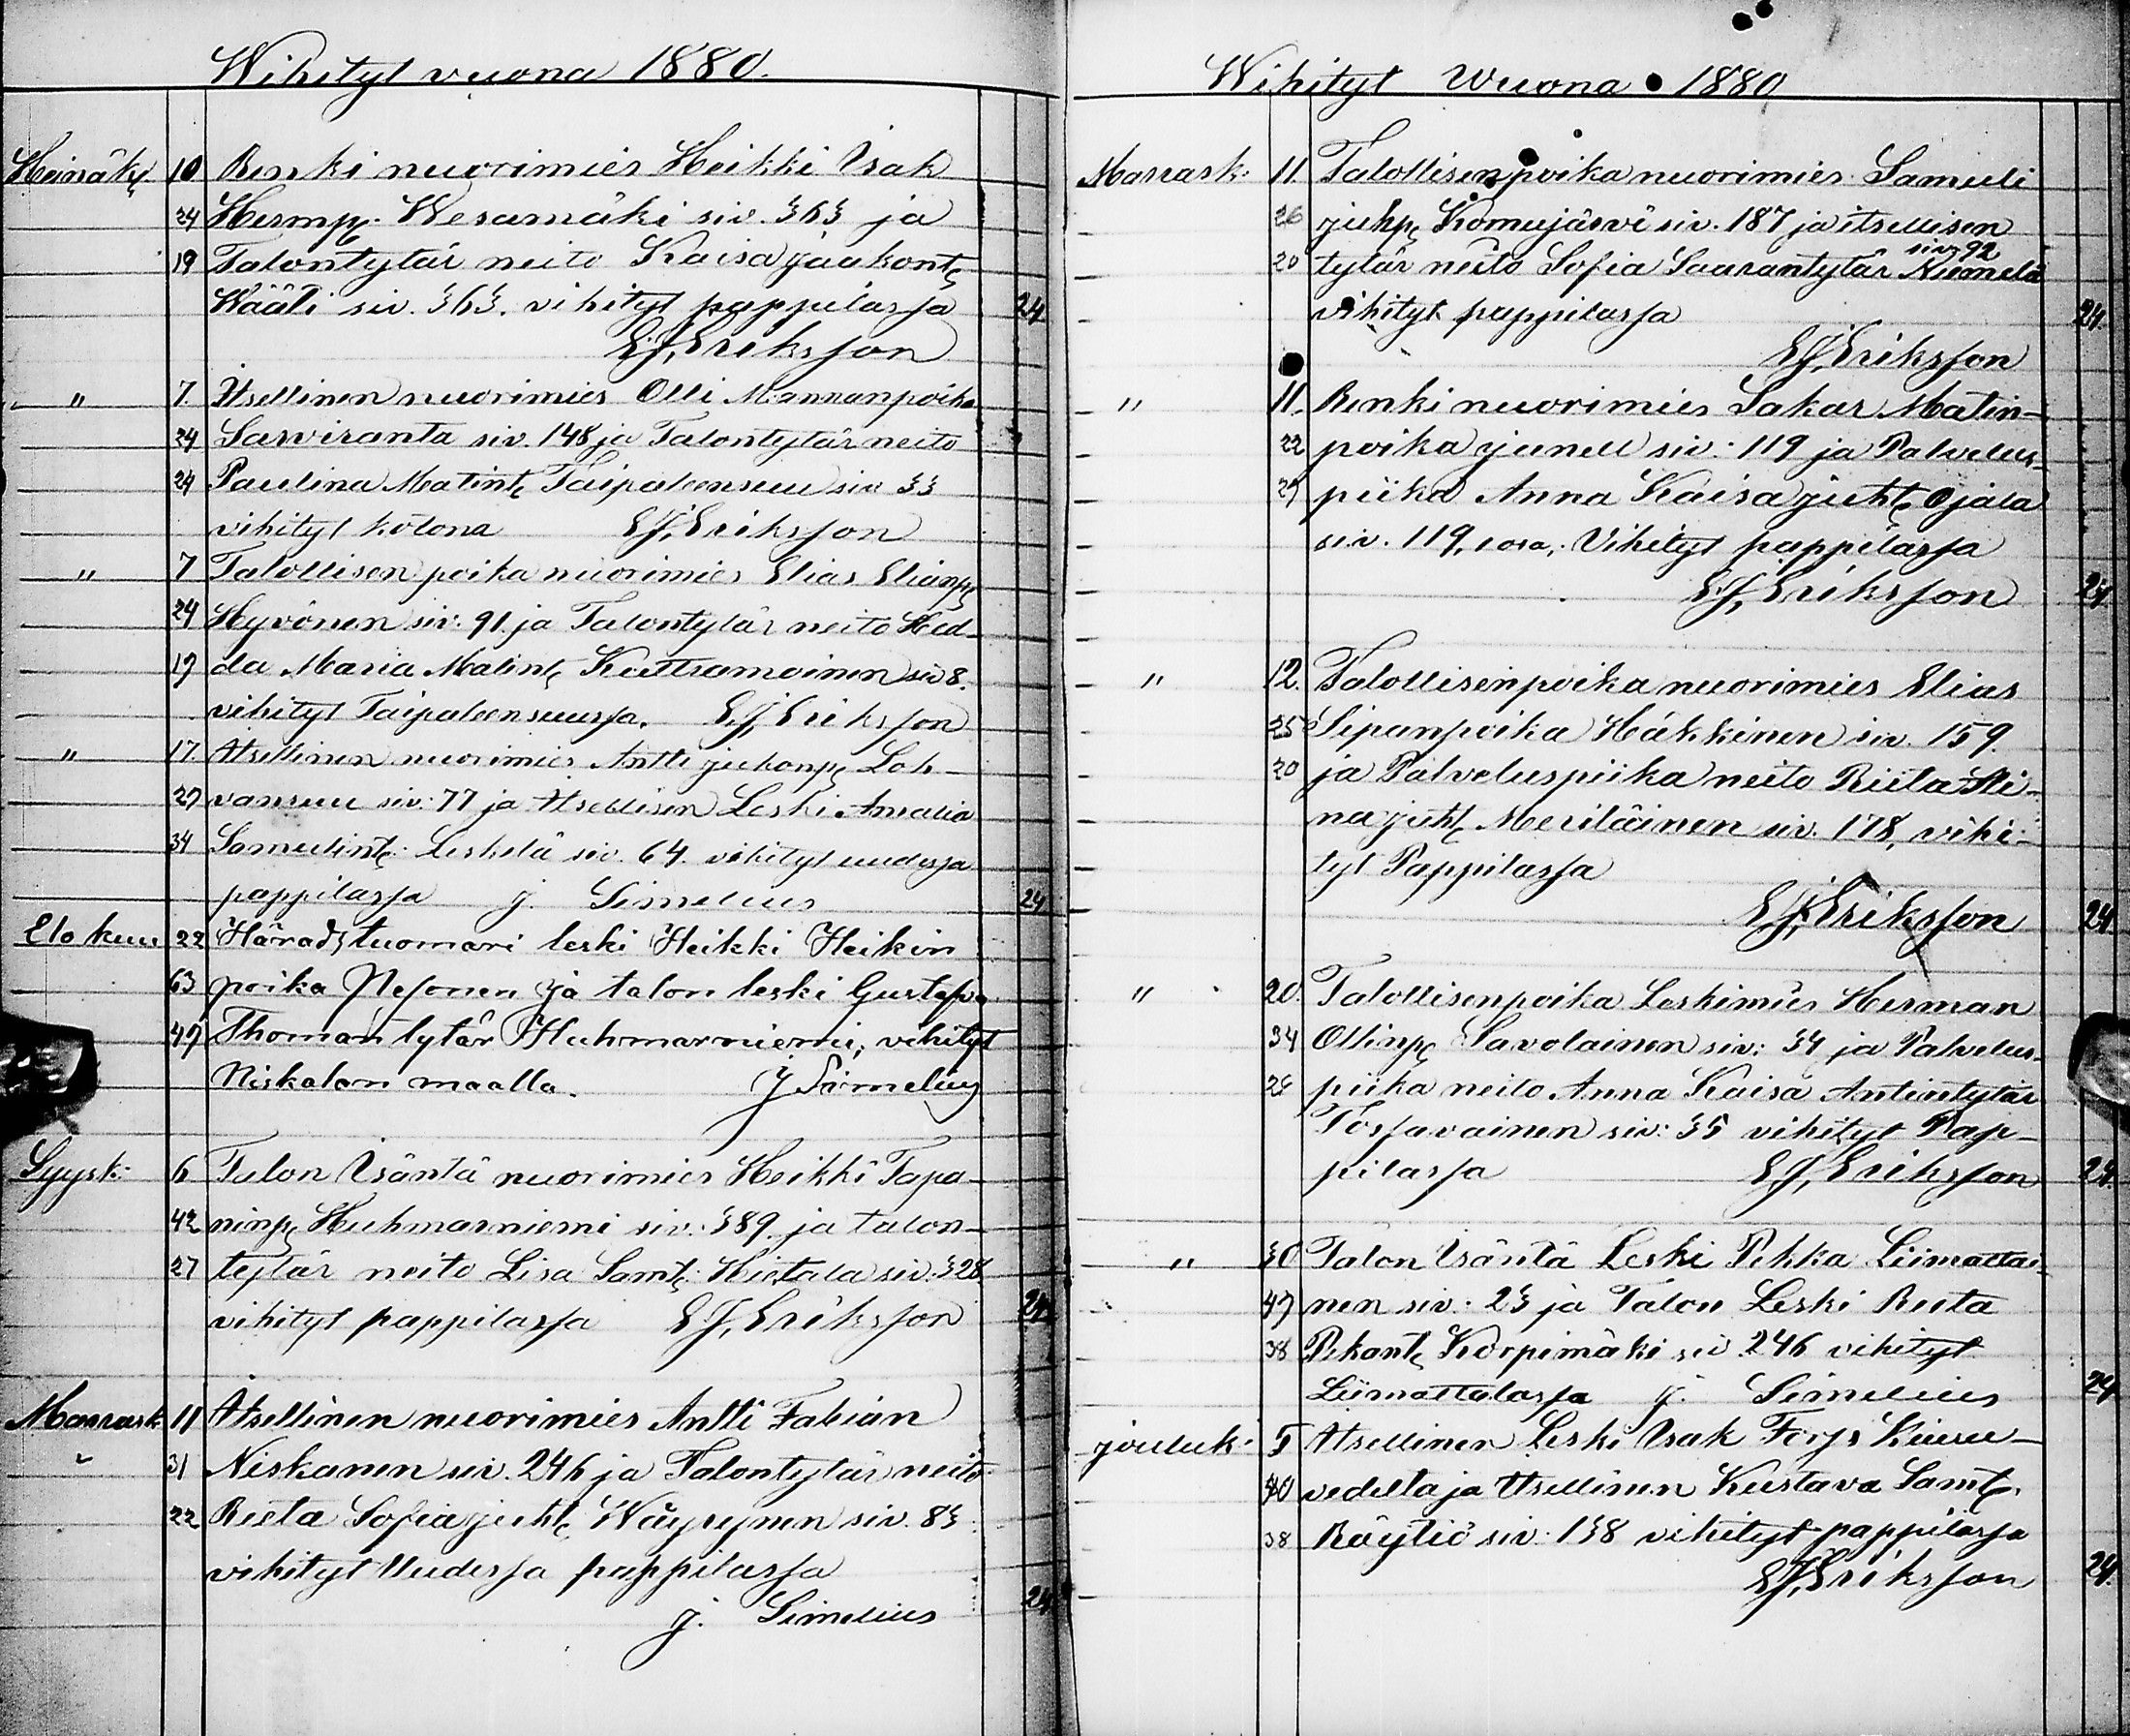 Wihityt vuona 1880.
Heinäk: 10 Renki nuorimies Heikki Isak
24 Hermp: Wesamäki siv. 363 ja
19 Talontytär neito Kaisa Jaakont:
Wääti siv. 363. vihityt pappilassa 24
E.J. Eriksson
" 7. Itsellinen nuorimies Olli Mannanpoika
24 Sarviranta siv. 148 ja Talontytär neito
24 Paulina Matint: Taipaleensuu siv 33
vihityt kotona E.J. Eriksson
" 7 Talollisen poika nuorimies Elias Elianp:
24 Hyvönen siv. 91. ja Talontytär neito Hed-
19 da Maria Matint: Kuttramoinen siv 8.
vihityt Taipaleensuussa. E.J. Eriksson
" 17. Itsellinen nuorimies Antti Juhonp: Loh-
27 vansuu siv: 77 ja Itsellisen Leski Amalia
34 Samulint: Leskelä siv. 64. vihityt uudessa
pappilassa J. Simelius 24
Elokuu 22 Häradstuomari leski Heikki Heikin
63 poika Nesonen ja talon leski Gustafva
49 Thoman tytär Huhmarniemi; vihityt
Niskalan maalla. J Simelius
Syysk: 6 Talon Isäntä nuorimies Heikki Tapa-
42 ninp: Huhmarniemi siv. 389. ja talon-
27 tytär neito Lisa Samt: Hietala siv: 328
vihityt pappilassa E.J. Eriksson 24
Marrask 11 Itsellinen nuorimies Antti Fabian
" 31 Niskanen siv. 246 ja Talontytär neito
22 Reeta Sofia Juht: Wäyrynen siv. 83
vihityt Uudessa pappilassa
J. Simelius 24
Wihityt Wuona 1880
Marrask: 11. Talollisenpoika nuorimies Samuli
26 Juhp: Komujärvi siv. 187 ja itsellisen
siv 92
20 tytär neito Sofia Saarantytär Niemelä
vihityt pappilassa 24.
E.J. Eriksson
" 11. Renki nuorimies Sakar Matin-
22 poika Junell siv: 119 ja Palvelus-
27 piika Anna Kaisa Juht: Ojala
siv. 119, 1 osa,. Vihityt pappilassa
E.J. Eriksson 24.
" 12. Talollisenpoika nuorimies Elias
25 Sipanpoika Häkkinen siv. 159.
20 ja Palveluspiika neito Riita Sti-
na Juht: Meriläinen siv. 178, vihi-
tyt Pappilassa
E.J. Eriksson 24.
" 20. Talollisenpoika Leskimies Herman
34 Ollinp: Savolainen siv: 34 ja Palvelus-
26 piika neito Anna Kaisa Antintytär
Tossavainen siv: 35 vihityt Pap-
pilassa E.J. Eriksson 24.
" 30 Talon Isäntä Leski Pekka Liimattai-
47 nen siv: 23 ja Talon Leski Reeta
38 Pekant: Korpimäki siv. 246 vihityt
Liimattalassa J. Simelius 24
Jouluk: 5 Itsellinen Leski Isak Forss Kiuru-
40 vedelta ja Itsellinen Kustava Samt:
38 Röytiö siv: 138 vihityt pappilassa
E.J. Eriksson 24.